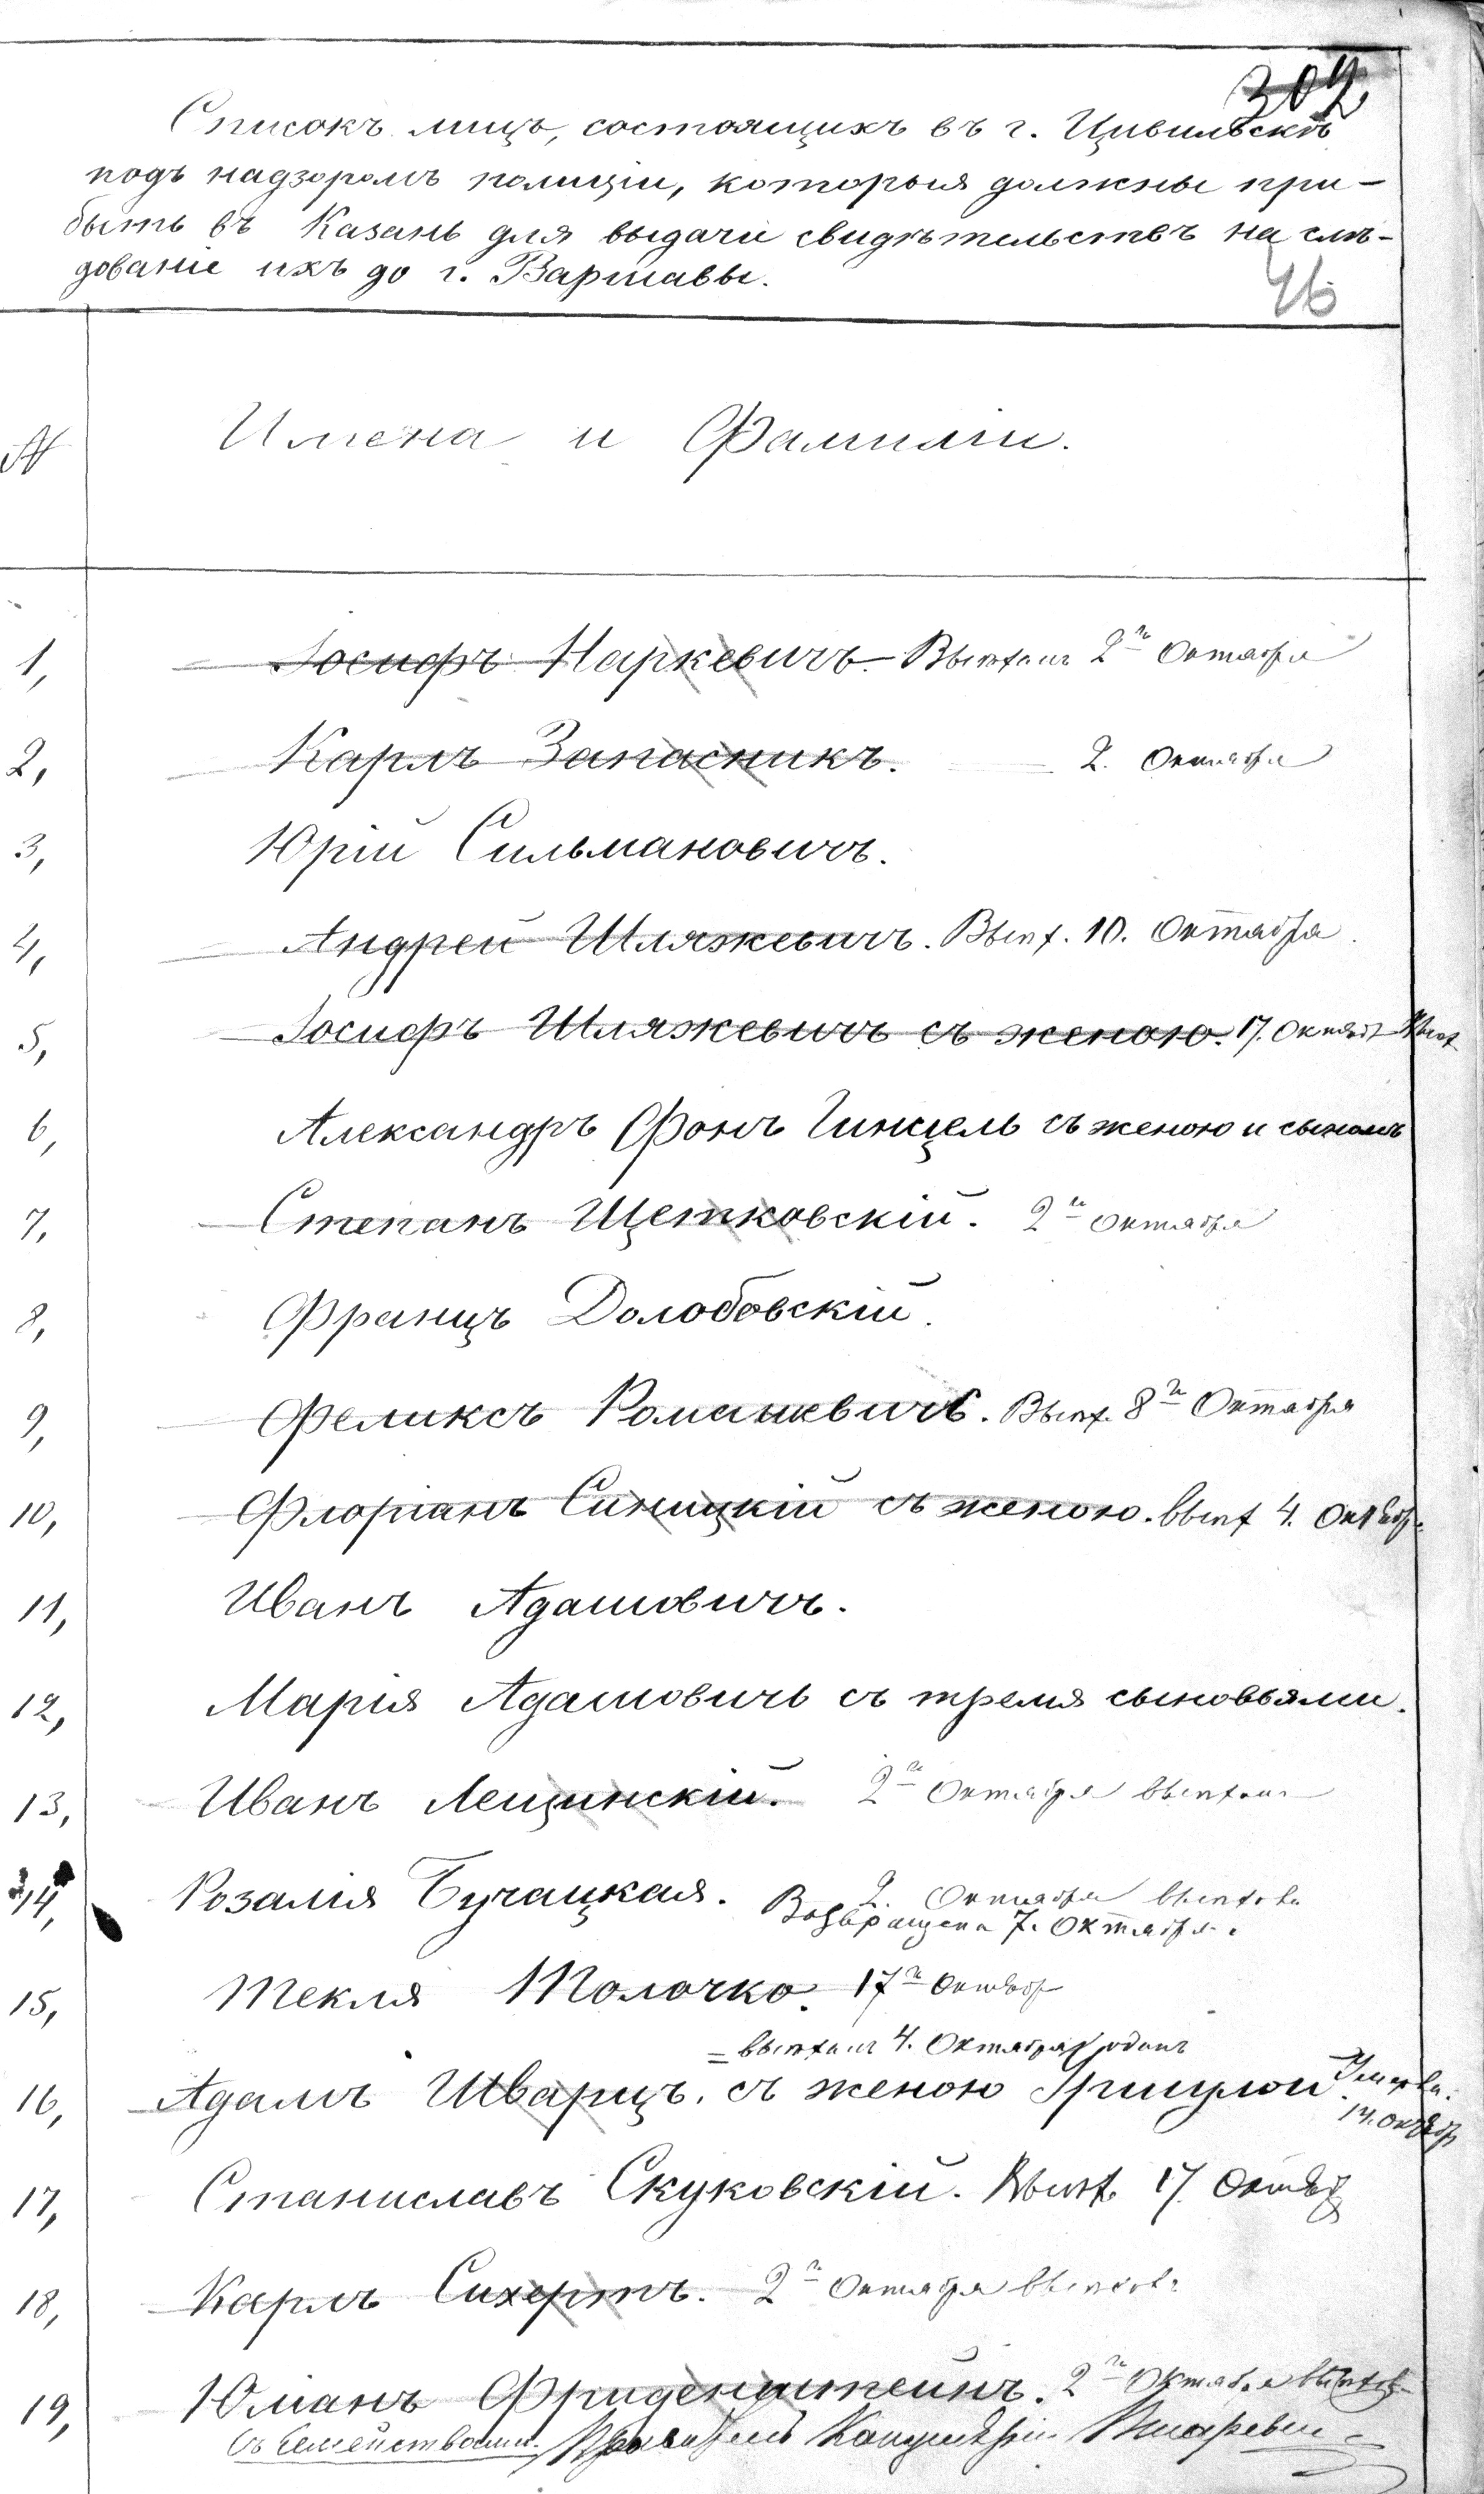 302
Списокъ лицъ, состоящихъ въ г. Цивильскѣ
подъ надзоромъ полиціи, которыя должны при-
быть въ Казань для выдачи свидѣтельствъ на слѣ-
дованіе ихъ до г. Варшавы.
46
№ Имена и Фамиліи.
1, Іосифъ Наркевичъ. Выѣхалъ 2го Октября
2, Карлъ Запасникъ. 2. Октября
3, Юрій Сильмановичъ.
4, Андрей Шляжевичъ. Выѣх. 10. Октября
5, Іосифъ Шляжевичъ съ женою. 17. Октяб Выѣх
6, Александръ Фонъ Гинцель съ женою и сыномъ
7, Степанъ Щетковскій. 2го Октября
8, Францъ Долобовскій.
9, Феликсъ Романкевичъ. Выѣх. 8го Октября
10, Флоріанъ Синицкій съ женою. выѣх 4. Октябр.
11, Иванъ Адамовичъ.
12, Марія Адамовичъ съ тремя сыновьями.
13, Иванъ Лещинскій. 2го Октября выѣхалъ
14, Розалія Бучацкая. 2. Октября выѣхала
Возвращена 7. Октября.
15, Текля Толочко. 17го Октябр
= выѣхалъ 4. Октября одинъ
16, Адамъ Шварцъ. съ женою
14. Октябр
17, Станиславъ Скуковскій. Выѣх. 17. Октяб
18, Карлъ Сихертъ. 2го Октября выѣхалъ
19, Юліанъ Фриденштейнъ. 2го Октября выѣхалъ
съ семействомъ. Правитель Канцеляріи